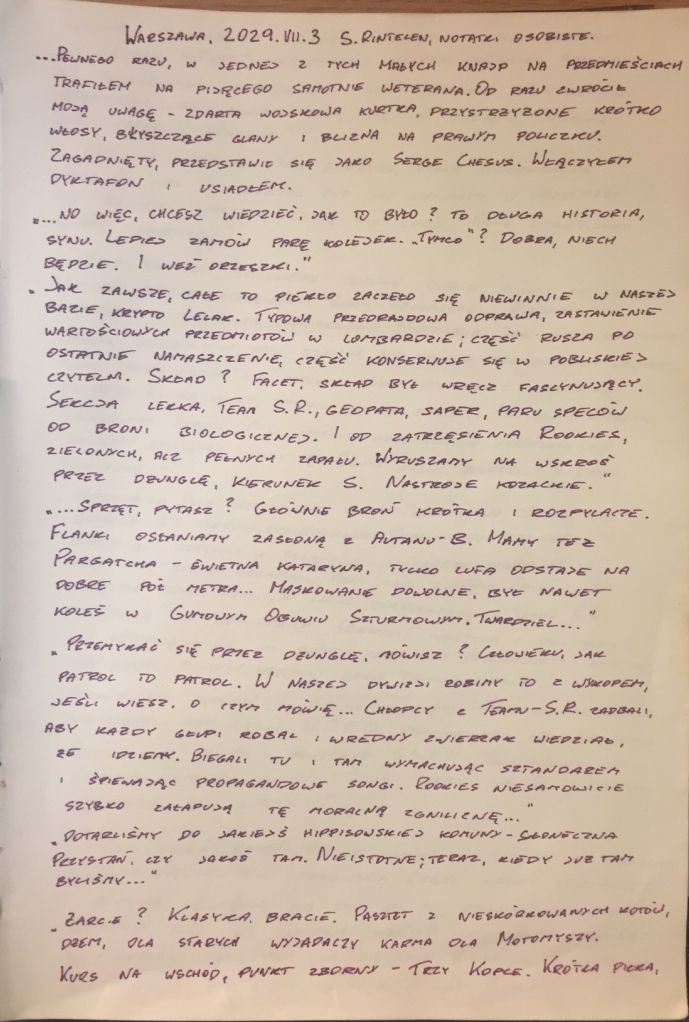 WARSZAWA, 2029.VII.3 S.RINTELEN, NOTATKI OSOBISTE.
...PEWNEGO RAZU, W JEDNEJ Z TYCH MAŁYCH KNAJP NA PRZEDMIEŚCIACH
TRAFIŁEM NA PIJĄCEGO SAMOTNIE WETERANA. OD RAZU ZWRÓCIŁ
MOJĄ UWAGĘ - ZDARTA WOJSKOWA KURTKA, PRZYSTRZYŻONE KRÓTKO
WŁOSY, BŁYSZCZĄCE GLANY I BLIZNA NA PRAWYM POLICZKU.
ZAGADNIĘTY, PRZEDSTAWIŁ SIĘ JAKO SERGE CHESUS. WŁĄCZYŁEM
DYKTAFON I USIADŁEM.
„...NO WIĘC, CHCESZ WIEDZIEĆ, JAK TO BYŁO? TO DŁUGA HISTORIA,
SYNU. LEPIEJ ZAMÓW PARĘ KOLEJEK. „TYMCO"? DOBRA, NIECH
BĘDZIE. I WEŹ ORZESZKI."
„JAK ZAWSZE, CAŁE TO PIEKŁO ZACZĘŁO SIĘ NIEWINNIE W NASZEJ
BAZIE, KRYPTO LELAK. TYPOWA PRZEDRAJDOWA ODPRAWA, ZASTAWIENIE
WARTOŚCIOWYCH PRZEDMIOTÓW W LOMBARDZIE; CZĘŚĆ RUSZA PO
OSTATNIE NAMASZCZENIE, CZĘŚĆ KONSERWUJE SIĘ W POBLISKIEJ
CZYTELNI. SKŁAD? FACET, SKŁAD BYŁ WRĘCZ FASCYNUJĄCY.
SEKCJA LEKKA, TEAM S.R., GEOPATA, SAPER, PARU SPECÓW
OD BRONI BIOLOGICZNEJ. I OD ZATRZĘSIENIA ROOKIES,
ZIELONYCH, ACZ PEŁNYCH ZAPAŁU. WYRUSZAMY NA WSKROŚ
PRZEZ DŻUNGLĘ, KIERUNEK S. NASTROJE KOZACKIE."
„...SPRZĘT, PYTASZ? GŁÓWNIE BROŃ KRÓTKA I ROZPYLACZE.
FLANKI OSŁANIAMY ZASŁONĄ Z AUTANU-B. MAMY TEŻ
PARGATCHA - ŚWIETNA KATARYNA, TYLKO LUFA ODSTAJE NA
DOBRE PÓŁ METRA... MASKOWANIE DOWOLNE, BYŁ NAWET
KOLEŚ W GUMOWYM OBUWIU SZTURMOWYM. TWARDZIEL..."
„PRZEMYKAĆ SIĘ PRZEZ DŻUNGLĘ, MÓWISZ? CZŁOWIEKU, JAK
PATROL TO PATROL. W NASZEJ DYWIZJI ROBIMY TO Z WYKOPEM,
JEŚLI WIESZ, O CZYM MÓWIĘ... CHŁOPCY Z TEAMU-S.R. ZADBALI,
ABY KAŻDY GŁUPI ROBAL I WREDNY ZWIERZAK WIEDZIAŁ,
ŻE IDZIEMY. BIEGALI TU I TAM WYMACHUJĄC SZTANDAREM
I ŚPIEWAJĄC PROPAGANDOWE SONGI. ROOKIES NIESAMOWICIE
SZYBKO ZAŁAPUJĄ TĘ MORALNĄ ZGNILIZNĘ..."
„DOTARLIŚMY DO JAKIEJŚ HIPPISOWSKIEJ KOMUNY - SŁONECZNA
PRZYSTAŃ, CZY JAKOŚ TAM. NIEISTOTNE; TERAZ, KIEDY JUŻ TAM
BYLIŚMY..."
„ŻARCIE? KLASYKA, BRACIE. PASZTET Z NIESKÓRKOWANYCH KOTÓW,
DŻEM, DLA STARYCH WYJADACZY KARMA DLA MOTOMYSZY.
KURS NA WSCHÓD, PUNKT ZBORNY - TRZY KOPCE. KRÓTKA PIŁKA,